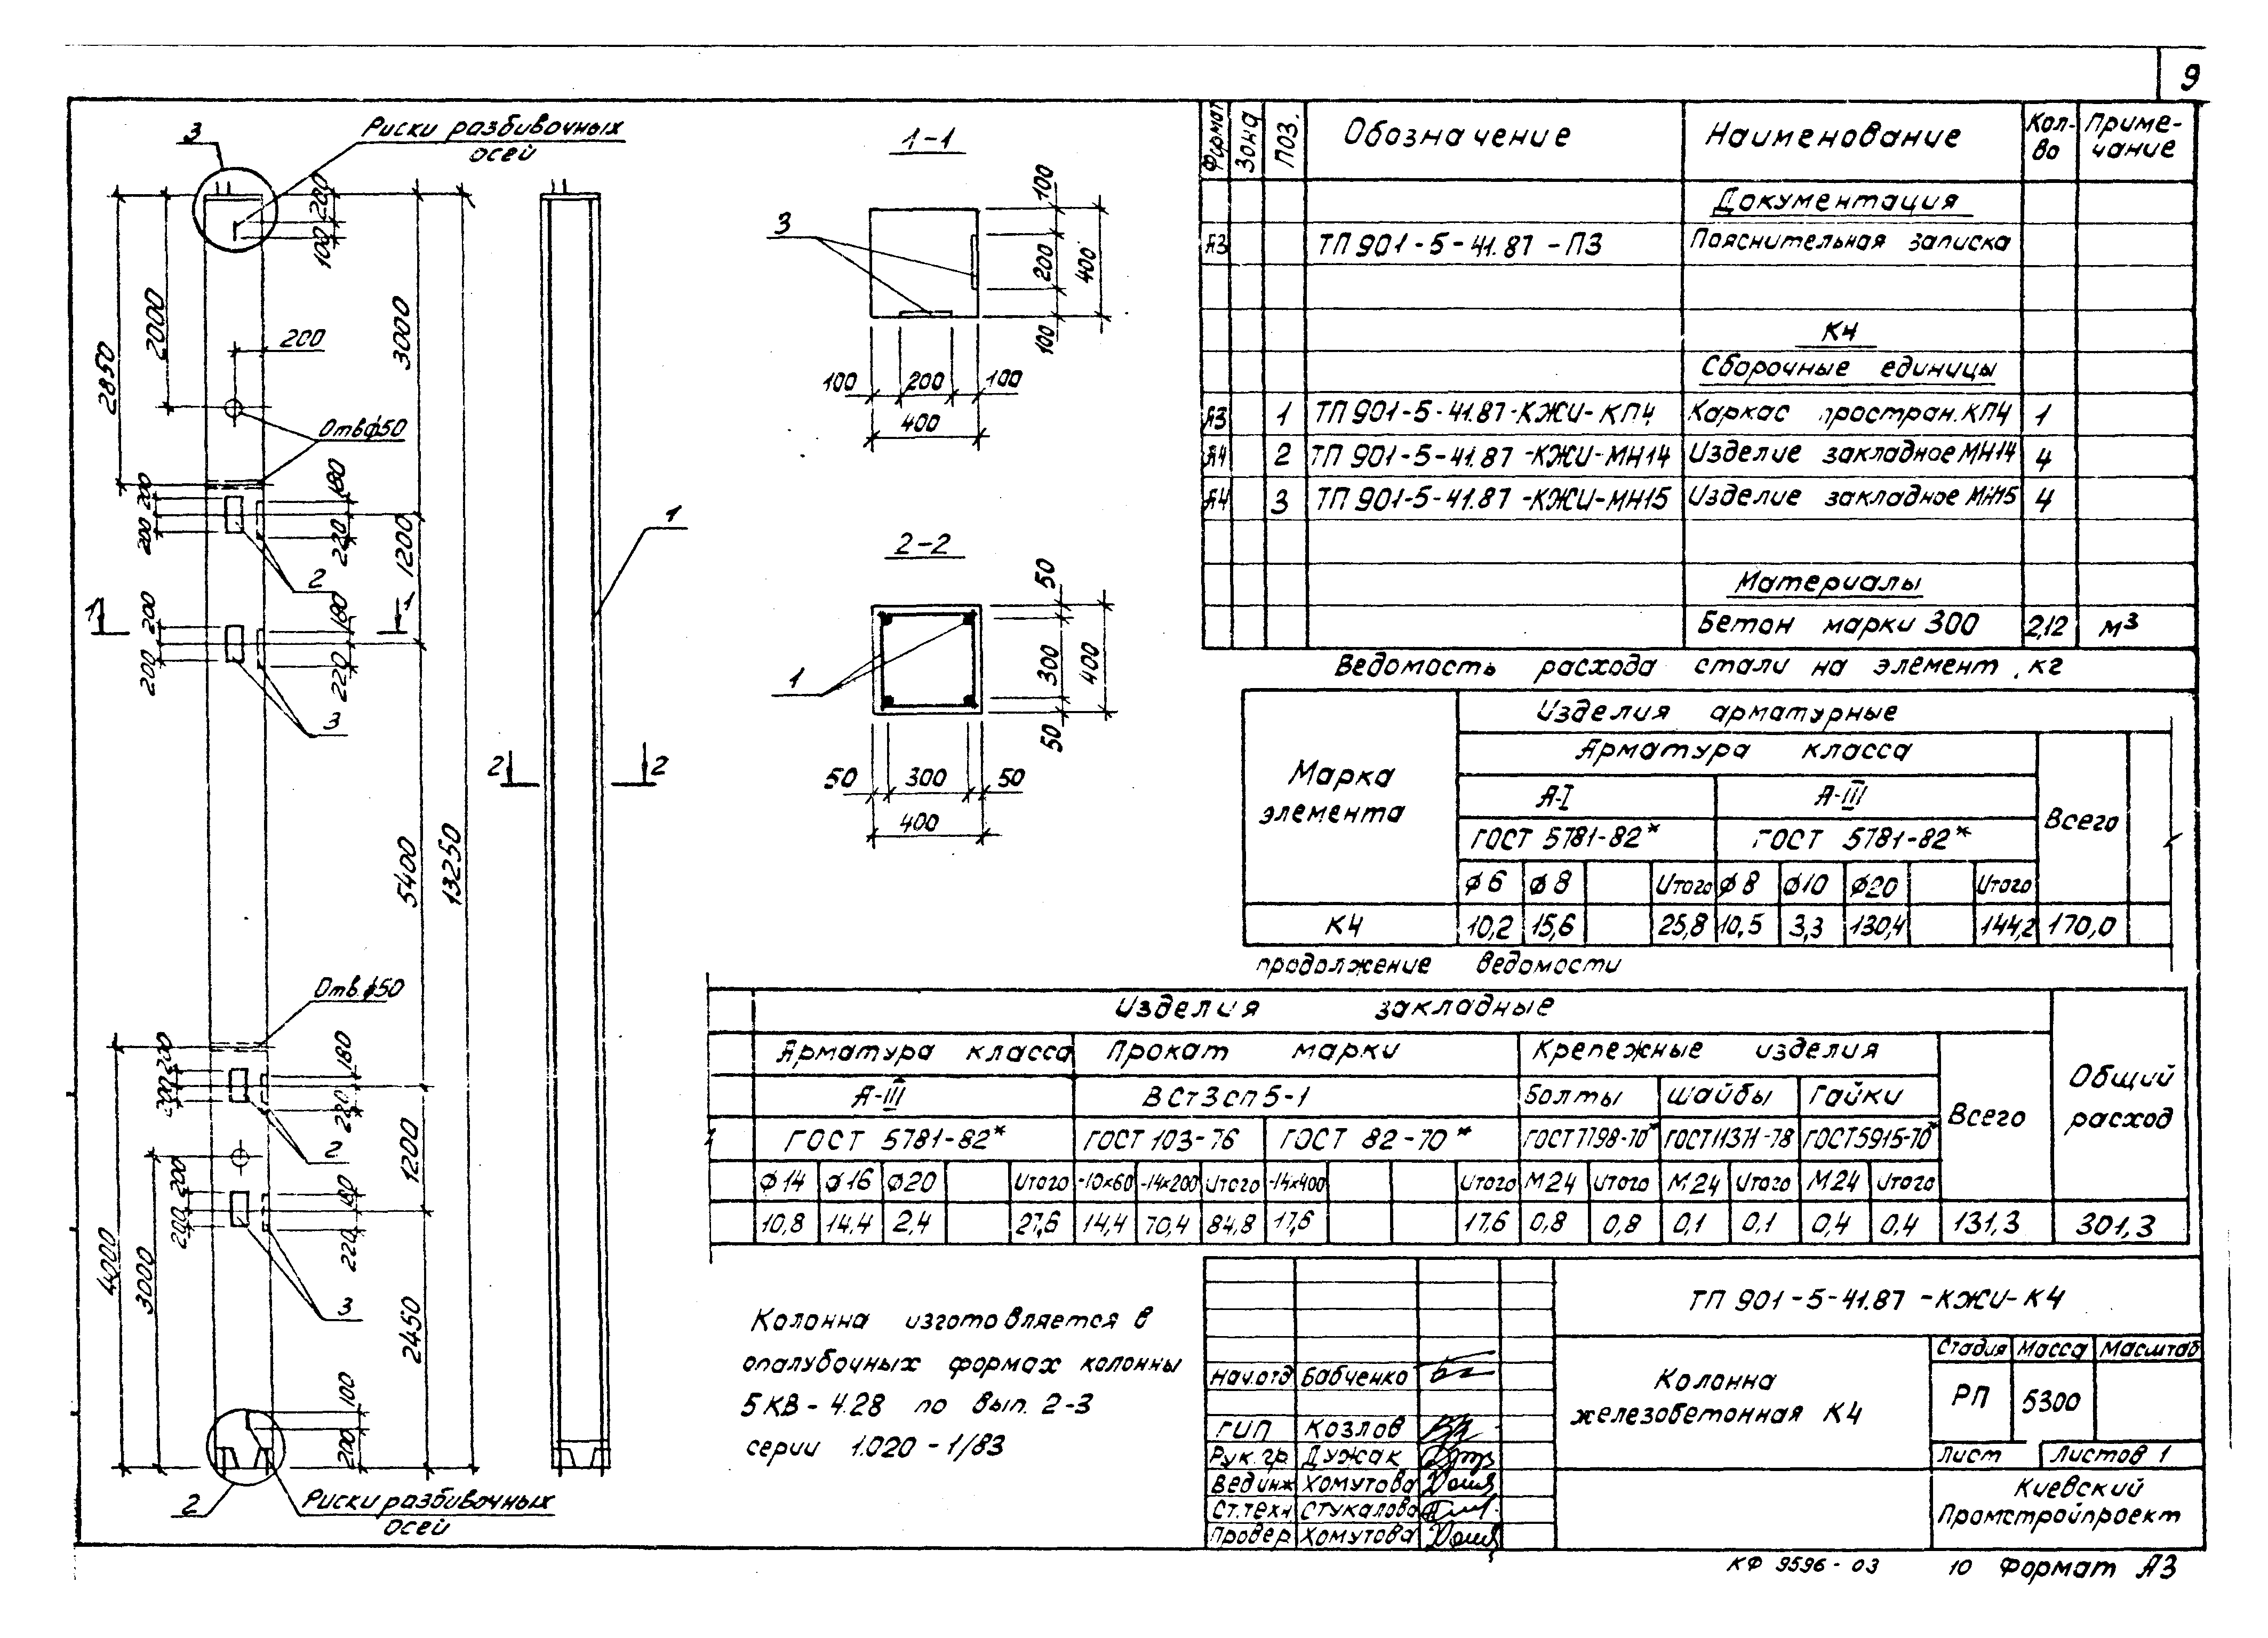 9
3
Риски разбивочных
осей
280
100
2850
2000
3000
200
Отв.ф50
200
200
180
220
1200
2
1
1
200
200
180
220
3
5400
13250
Отв.ф50
200
200
180
220
2
1200
200
200
180
220
3
4000
3000
2450
100
200
2
Риски разбивочных
осей
1
2
2
1-1
3
100
200
400
100
100
200
100
400
2-2
50
300
400
50
1
50
300
50
400
Формат
Зона
Поз.
Обозначение
Наименование
Кол-во
Примечание
Документация
А3 ТП 901-5-41.87-ПЗ Пояснительная записка
К4
Сборочные единицы
А3 1 ТП 901-5-41.87-КЖИ-КП4 Каркас простран. КП4 1
А4 2 ТП 901-5-41.87-КЖИ-МН14 Изделие закладное МН14 4
А4 3 ТП 901-5-41.87-КЖИ-МН15 Изделие закладное МН15 4
Материалы
Бетон марки 300 2,12 м³
Ведомость расхода стали на элемент, кг
Марка
элемента
Изделия арматурные
Арматура класса
А-I А-III
Всего
ГОСТ 5781-82* ГОСТ 5781-82*
ф6 ф8 Итого ф8 ф10 ф20 Итого
К4 10,2 15,6 25,8 10,5 3,3 130,4 144,2 170,0
продолжение ведомости
Изделия закладные
Арматура класса Прокат марки Крепежные изделия
Общий
расход
А-III ВСт3сп5-1 Болты Шайбы Гайки
Всего
ГОСТ 5781-82* ГОСТ 103-76 ГОСТ 82-70* ГОСТ 7798-70* ГОСТ 11371-78 ГОСТ 5915-70*
ф14 ф16 ф20 Итого -10х60 -14х200 Итого -14х400 Итого М24 Итого М24 Итого М24 Итого
10,8 14,4 2,4 27,6 14,4 70,4 84,8 17,6 17,6 0,8 0,8 0,1 0,1 0,4 0,4 131,3 301,3
Колонна изготовляется в
опалубочных формах колонны
5КВ-4.28 по вып. 2-3
серии 1.020-1/83
ТП 901-5-41.87-КЖИ-К4
Нач.отд Бабченко
ГИП Козлов
Рук.гр. Дужак
Вед.инж Хомутова
Ст.техн Стукалова
Провер Хомутова
Колонна
железобетонная К4
Стадия Масса Масштаб
РП 5300
Лист Листов 1
Киевский
Промстройпроект
КФ 9596-03 10 Формат А3